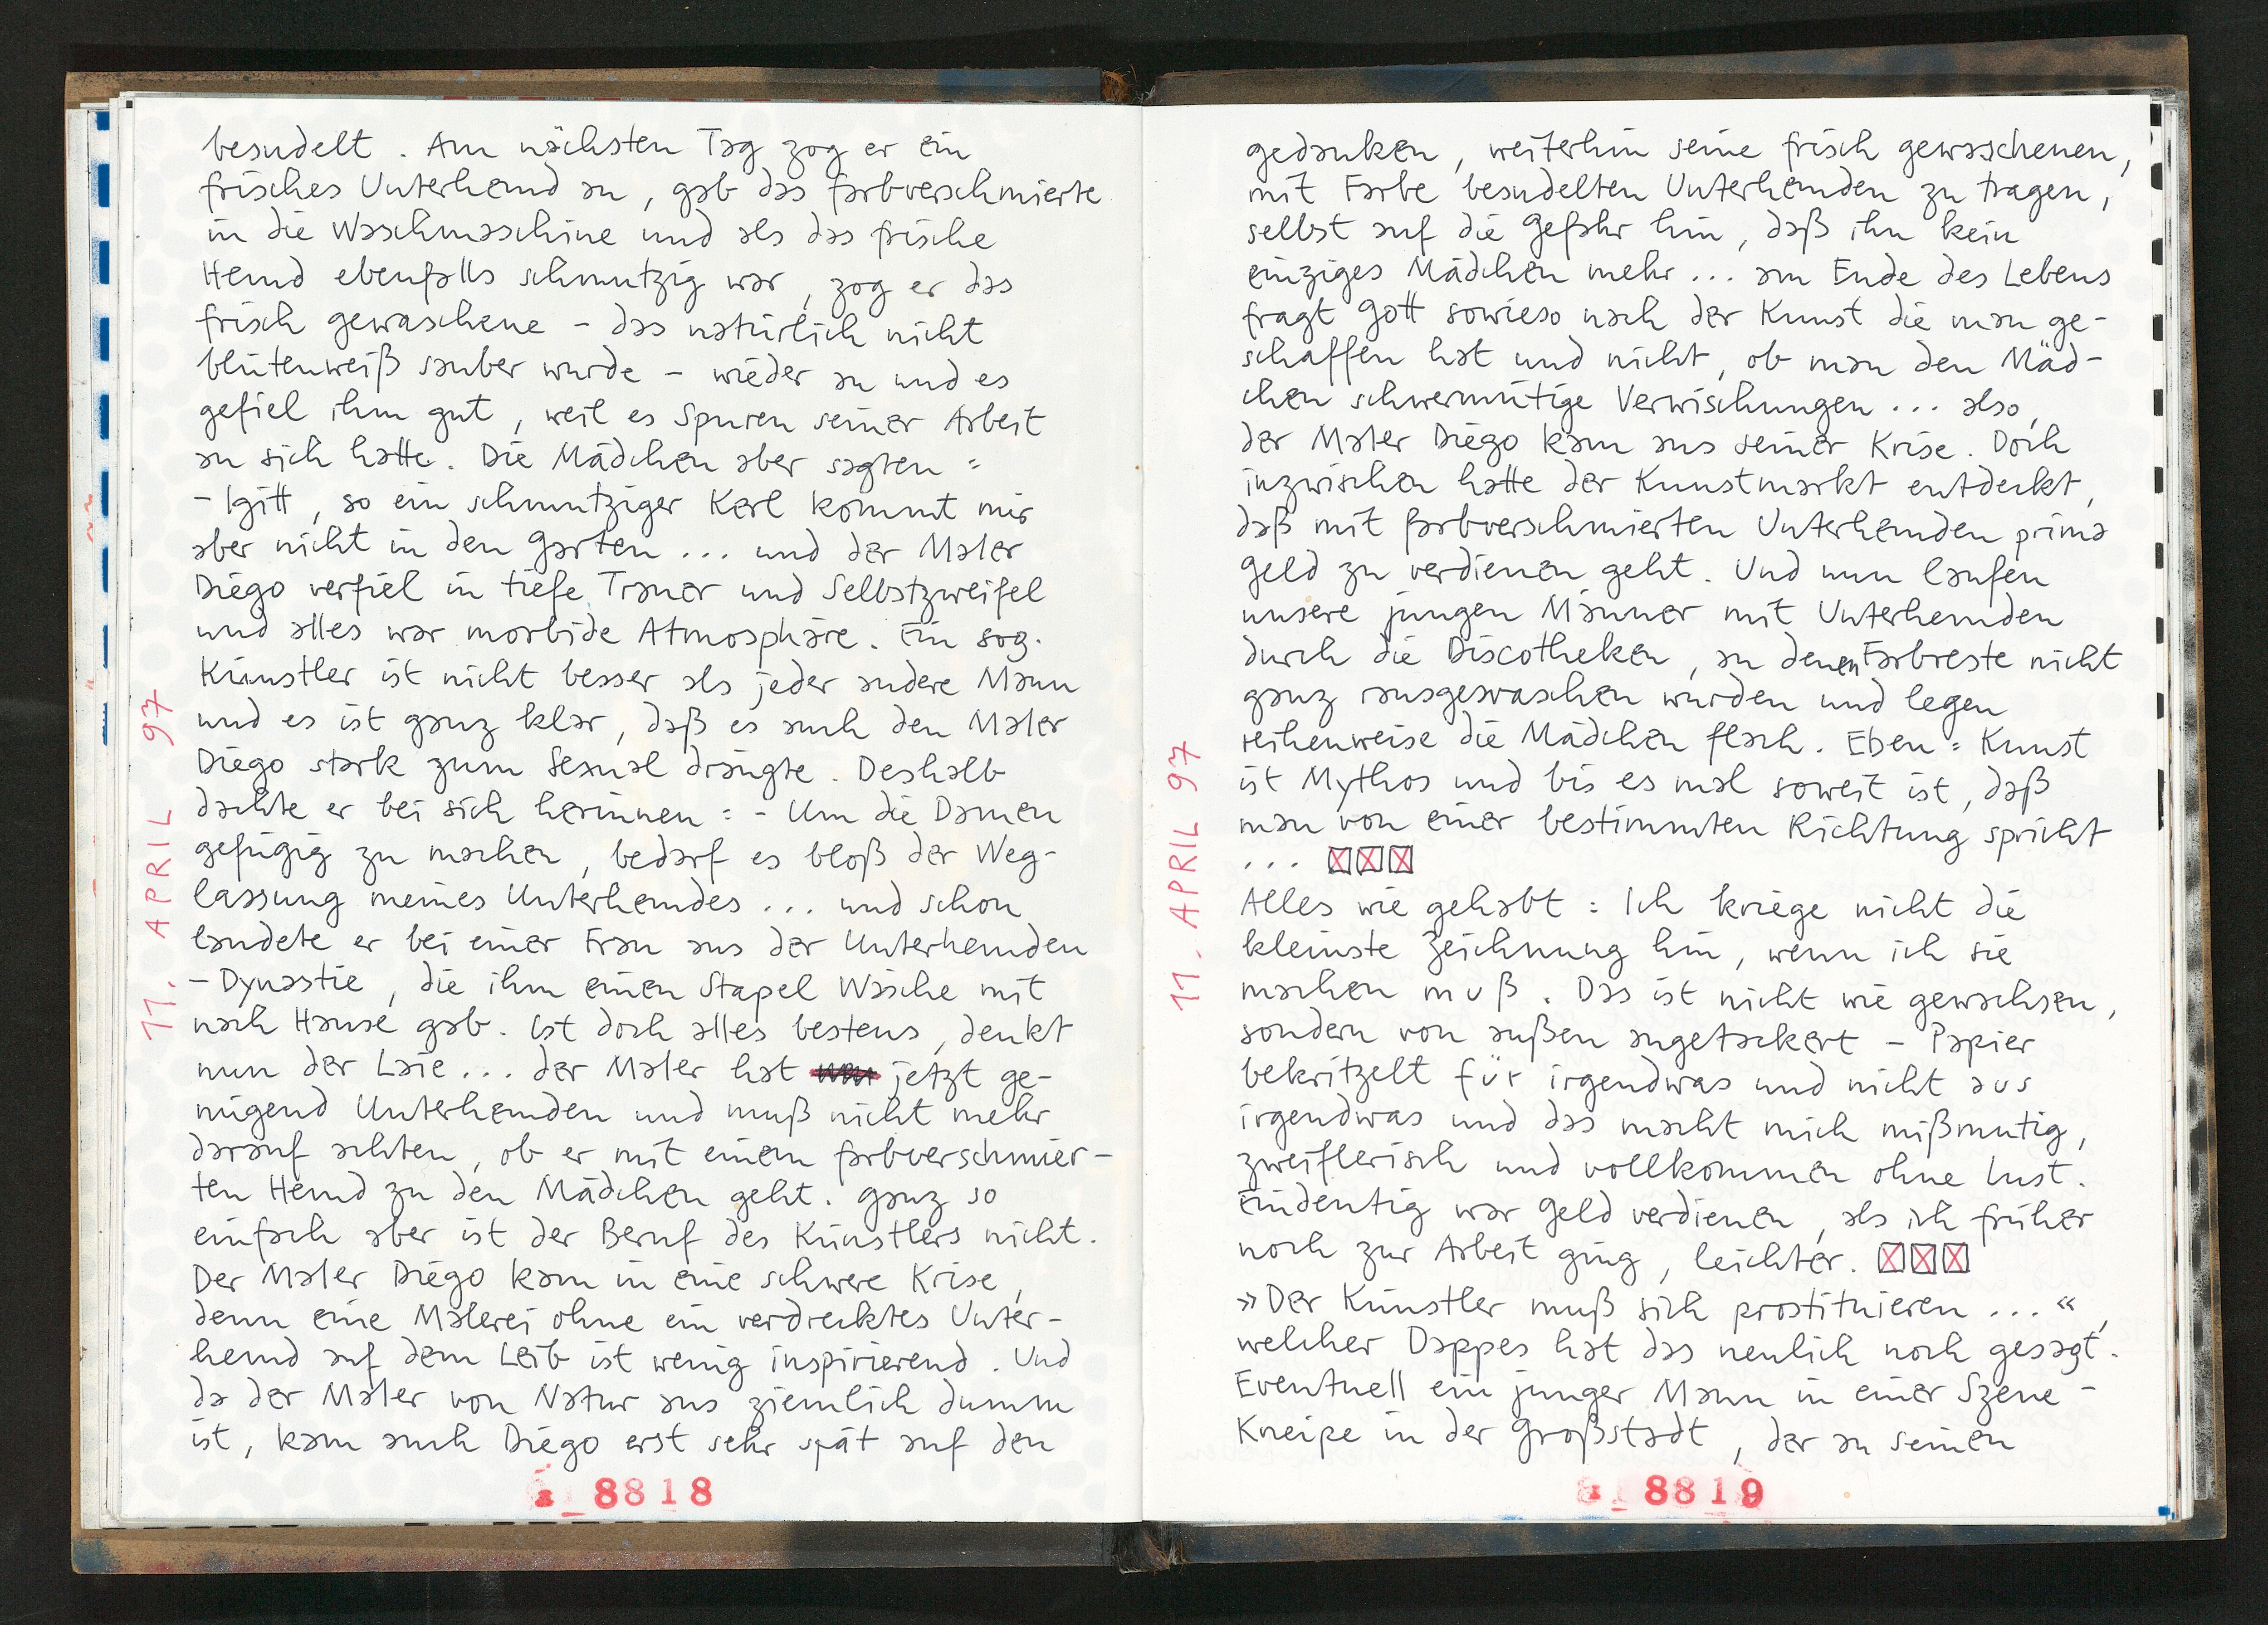 besudelt. Am nächsten Tag zog er ein
frisches Unterhemd an, gab das farbverschmierte
in die Waschmaschine und als das frische
Hemd ebenfalls schmutzig war, zog er das
frisch gewaschene – das natürlich nicht
blütenweiß sauber wurde – wieder an und es
gefiel ihm gut, weil es Spuren seiner Arbeit
an sich hatte. Die Mädchen aber sagten =
– Igitt, so ein schmutziger Kerl kommt mir
aber nicht in den Garten ... und der Maler
Diego verfiel in tiefe Trauer und Selbstzweifel
und alles war morbide Atmosphäre. Ein sog.
Künstler ist nicht besser als jeder andere Mann
und es ist ganz klar, daß es auch den Maler
Diego stark zum Sexual drängte. Deshalb
dachte er bei sich herinnen = - Um die Damen
gefügig zu machen, bedarf es bloß der Weg-
lassung meines Unterhemdes ... und schon
landete er bei einer Frau aus der Unterhemden
– Dynastie, die ihm einen Stapel Wäsche mit
nach Hause gab. Ist doch alles bestens, denkt
nun der Laie ... der Maler hat jetzt ge-
nügend Unterhemden und muß nicht mehr
darauf achten, ob er mit einem farbverschmier-
ten Hemd zu den Mädchen geht. Ganz so
einfach aber ist der Beruf des Künstlers nicht.
Der Maler Diego kam in eine schwere Krise,
denn eine Malerei ohne ein verdrecktes Unter-
hemd auf dem Leib ist wenig inspirierend. Und
da der Maler von Natur aus ziemlich dumm
ist, kam auch Diego erst sehr spät auf den
11. APRIL 97
8818
gedanken, weiterhin seine frisch gewaschenen,
mit Farbe besudelten Unterhemden zu tragen,
selbst auf die Gefahr hin, daß ihn kein
einziges Mädchen mehr ... am Ende des Lebens
fragt Gott sowieso nach der Kunst die man ge-
schaffen hat und nicht, ob man den Mäd-
chen schwermütige Verwischungen ... also,
der Maler Diego kam aus seiner Krise. Doch
inzwischen hatte der Kunstmarkt entdeckt,
daß mit farbverschmierten Unterhemden prima
Geld zu verdienen geht. Und nun laufen
unsere jungen Männer mit Unterhemden
durch die Discotheken, an denen Farbreste nicht
ganz rausgewaschen wurden und legen
reihenweise die Mädchen flach. Eben = Kunst
ist Mythos und bis es mal soweit ist, daß
man von einer bestimmten Richtung spricht
... ☒☒☒
Alles wie gehabt : Ich kriege nicht die
kleinste Zeichnung hin, wenn ich sie
machen muß. Das ist nicht wie gewachsen,
sondern von außen angetackert – Papier
bekritzelt für irgendwas und nicht aus
irgendwas und das macht mich mißmutig,
zweiflerisch und vollkommen ohne Lust.
Eindeutig war Geld verdienen, als ich früher
noch zur Arbeit ging, leichter. ☒☒☒
»Der Künstler muß sich prostituieren ... «,
welcher Dappes hat das neulich noch gesagt.
Eventuell ein junger Mann in einer Szene -
Kneipe in der Großstadt, der an seinen
11. APRIL 97
8819